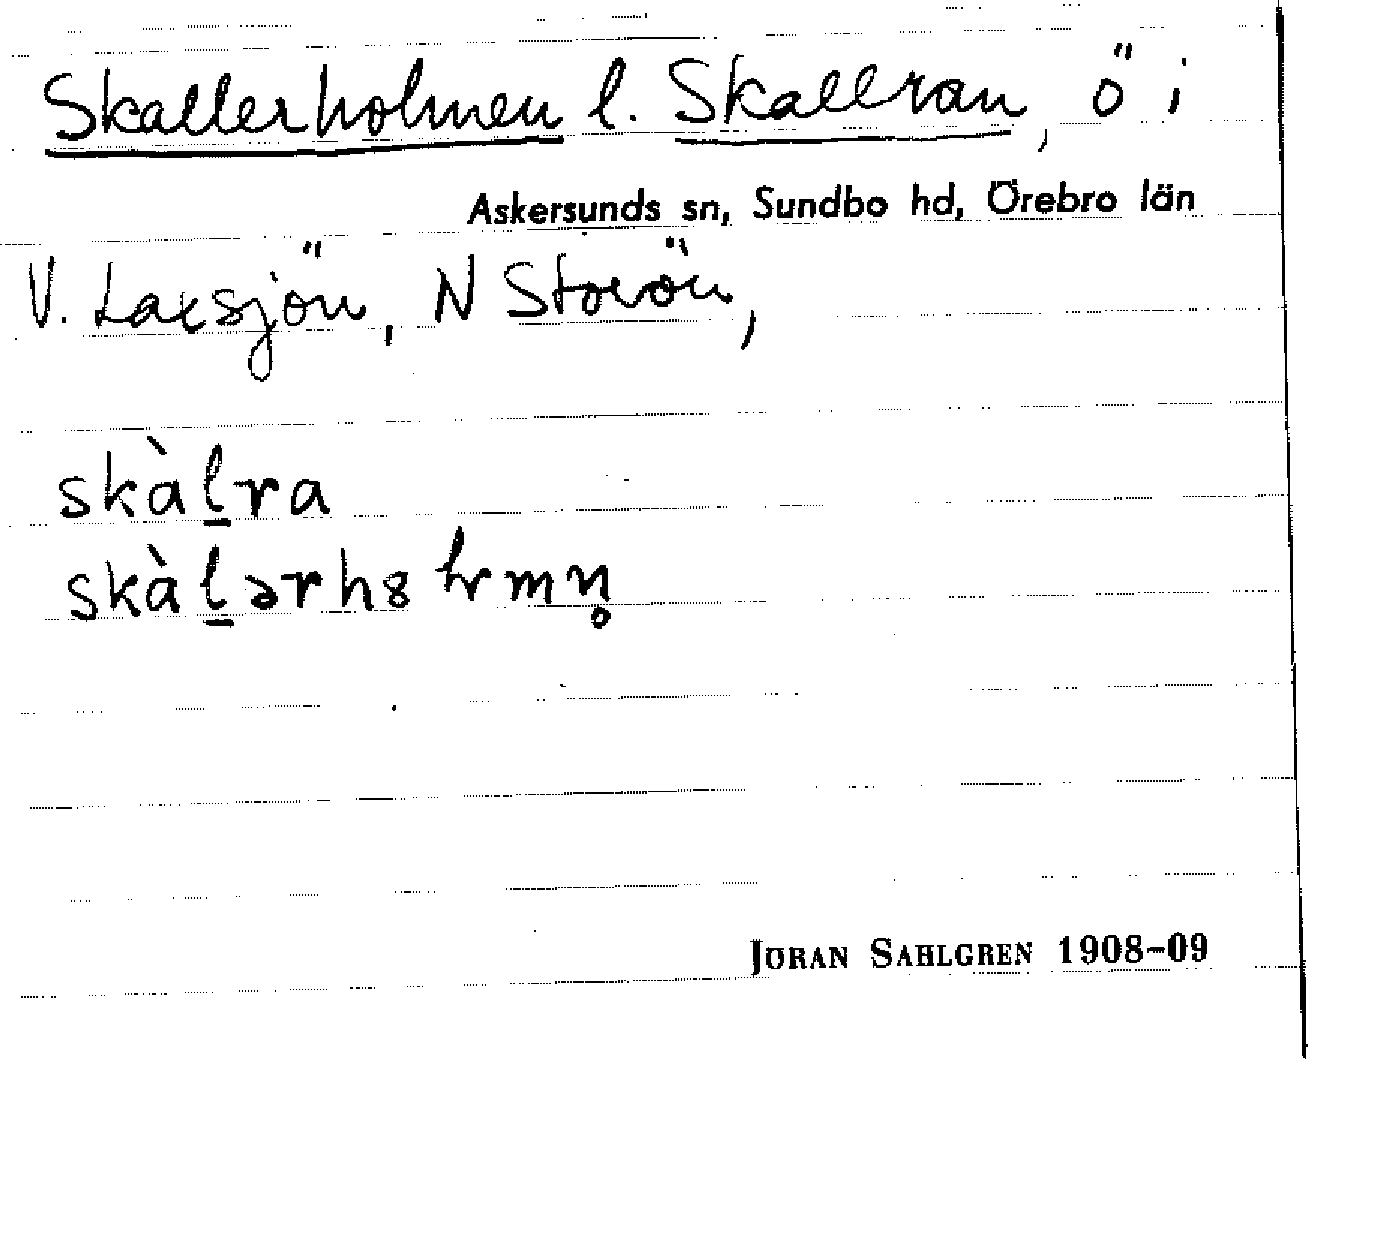 Skallerholmen l. Skallran, ö i
Askersunds sn, Sundbo hd, Örebro län
V. Laxsjön, N Storön,
skàl̲ra
skàl̲ərh8
JÖRAN SAHLGREN 1908-09